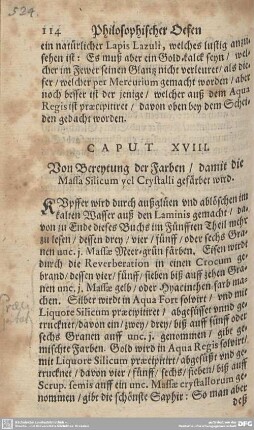 524.
114 Philosophischer Oefen
ein natürlicher Lapis Lazuli, welches lustig anzu-
sehen ist: Es muß aber ein Gold-kalck seyn / wel-
cher im Fewer seinen Glantz nicht verleuret / als die-
ser / welcher per Mercurium gemacht worden / aber
noch besser ist der jenige / welcher auß dem Aqua
Regis ist præcipitiret / davon oben bey dem Schei-
den gedacht worden.
CAPUT XVIII.
Von Bereytung der Farben / damit die
Massa Silicum vel Crystalli gefärbet wird.
KUpffer wird durch außglüen und ablöschen im
kalten Wasser auß den Laminis gemacht / da-
von zu Ende dieses Buchs im Fünfften Theil mehr
zu lesen / dessen drey / vier / fünff / oder sechs Gra-
nen unc. j. Massæ Meer-grün färben. Eisen wird
durch die Reverberation in einen Crocum ge-
brand / dessen vier / fünff / sieben biß auff zehen Gra-
nen unc. j. Massæ gelb / oder Hyacinthen-farb ma-
chen. Silber wirdt in Aqua Fort solvirt / und mit
Liquore Silicum præcipitiret / abgesüsset unnd ge-
truckнet / davon ein / zwey / drey / biß auff fünff oder
sechs Granen auff unc. j. genommen / gibt ge-
mischte Farben. Gold wird in Aqua Regis solvirt /
mit Liquore Silicum præcipitirt / abgesüßt und ge-
trucknet / davon vier / fünff / sechs / sieben / biß auff
Scrup. semis auff ein unc. Massæ crystallorum ge-
nommen / gibt die schönste Saphir: So man aber
deß